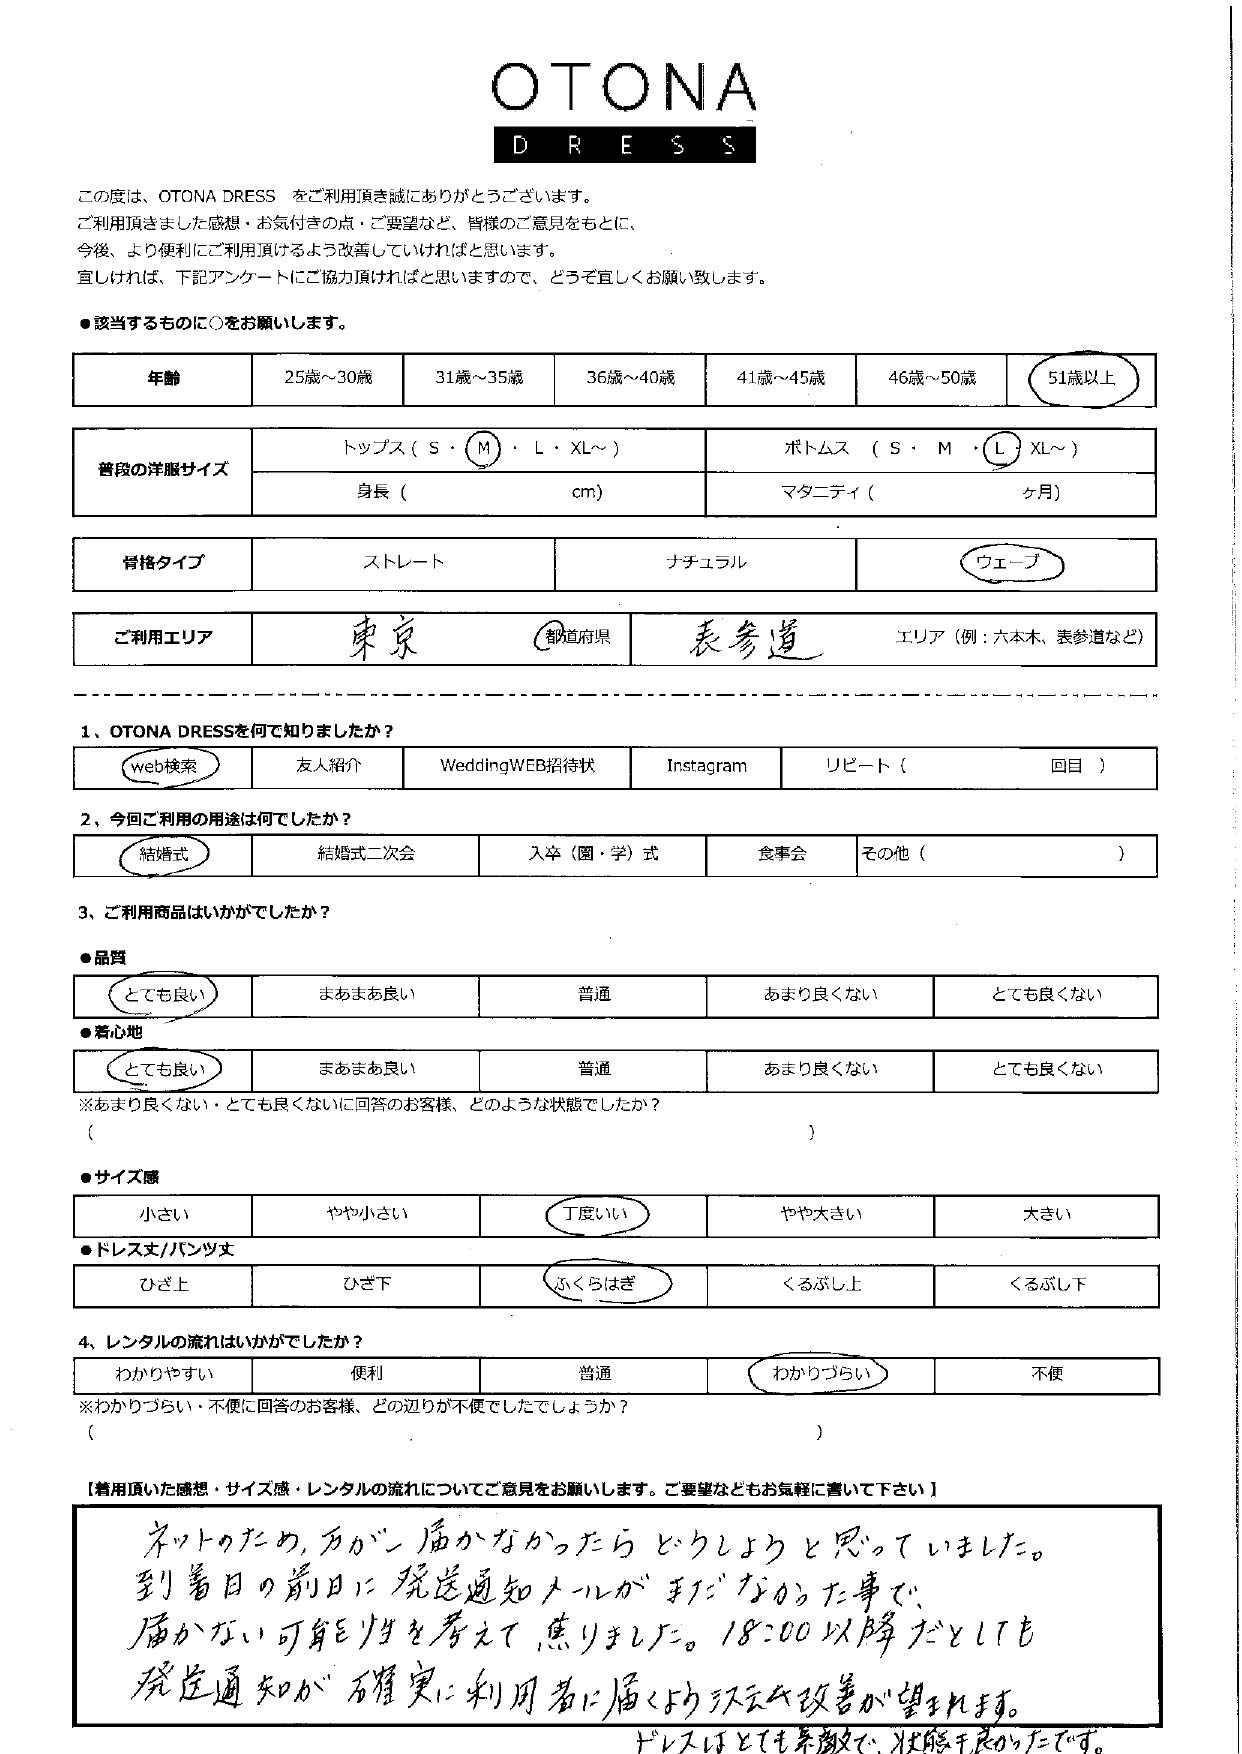 OTONA
DRESS
この度は、OTONA DRESS をご利用頂き誠にありがとうございます。
ご利用頂きました感想・お気付きの点・ご要望など、皆様のご意見をもとに、
今後、より便利にご利用頂けるよう改善していければと思います。
宜しければ、下記アンケートにご協力頂ければと思いますので、どうぞ宜しくお願い致します。
●該当するものに○をお願いします。
年齢 25歳～30歳 31歳～35歳 36歳～40歳 41歳～45歳 46歳～50歳 51歳以上
普段の洋服サイズ トップス ( S ・ M ・ L ・ XL～ ) ボトムス ( S ・ M ・ L ・ XL～ )
身長 ( cm) マタニティ ( ヶ月)
骨格タイプ ストレート ナチュラル ウェーブ
ご利用エリア 東京 都道府県 表参道 エリア（例：六本木、表参道など）
1、OTONA DRESSを何で知りましたか？
web検索 友人紹介 WeddingWEB招待状 Instagram リピート（ 回目 ）
2、今回ご利用の用途は何でしたか？
結婚式 結婚式二次会 入卒（園・学）式 食事会 その他（ ）
3、ご利用商品はいかがでしたか？
●品質
とても良い まあまあ良い 普通 あまり良くない とても良くない
●着心地
とても良い まあまあ良い 普通 あまり良くない とても良くない
※あまり良くない・とても良くないに回答のお客様、どのような状態でしたか？
（ ）
●サイズ感
小さい やや小さい 丁度いい やや大きい 大きい
●ドレス丈/パンツ丈
ひざ上 ひざ下 ふくらはぎ くるぶし上 くるぶし下
4、レンタルの流れはいかがでしたか？
わかりやすい 便利 普通 わかりづらい 不便
※わかりづらい・不便に回答のお客様、どの辺りが不便でしたでしょうか？
（ ）
【着用頂いた感想・サイズ感・レンタルの流れについてご意見をお願いします。ご要望などもお気軽に書いて下さい】
ネットのため,万が一届かなかったらどうしようと思っていました。
到着日の前日に発送通知メールがまだなかった事で、
届かない可能性を考えて焦りました。18:00以降だとしても
発送通知が確実に利用者に届くようシステム改善が望まれます。
ドレスはとても素敵で、状態も良かったです。